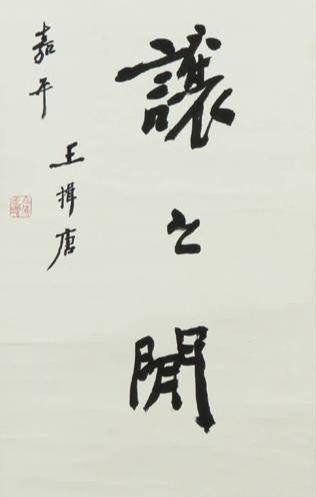 讓之閒
嘉平
王揖唐